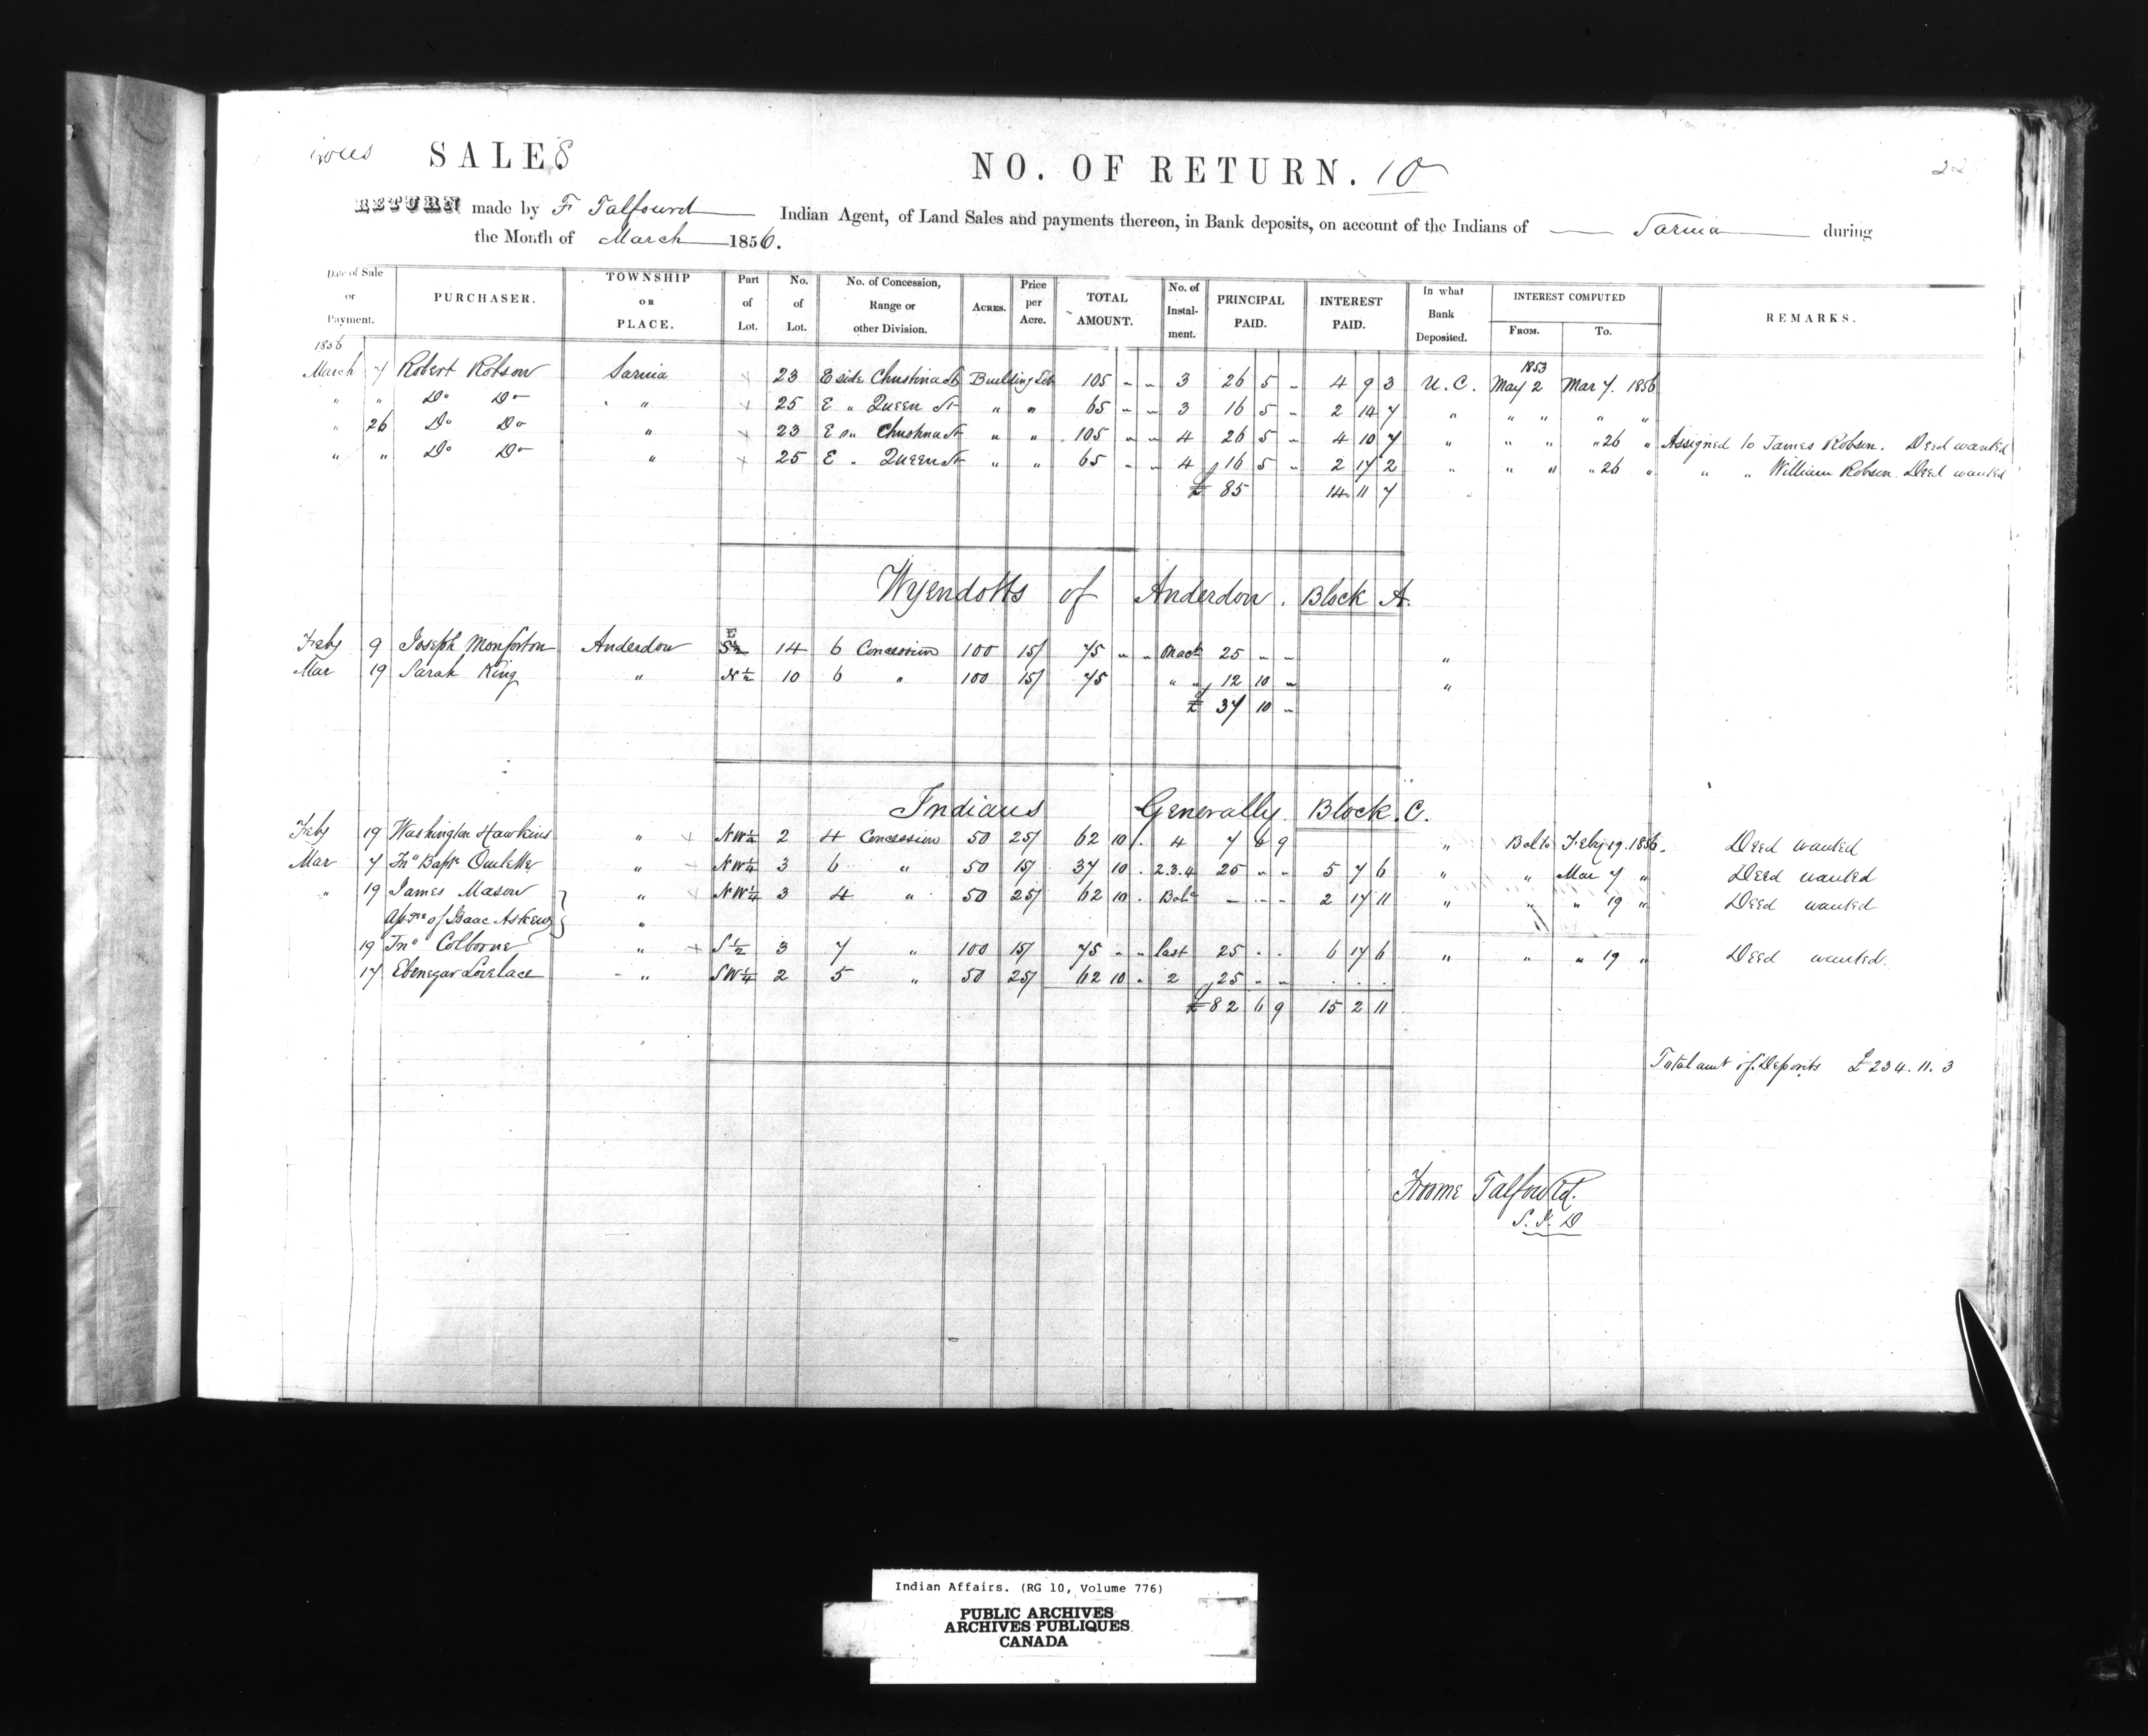 SALES NO. OF RETURN. 10
RETURN made by F Talfourd Indian Agent, of Land Sales and payments thereon, in Bank deposits, on account of the Indians of Sarnia during
the Month of March 1856.
Date of Sale or Payment. PURCHASER. TOWNSHIP OR PLACE. Part of Lot. No. of Lot. No. of Concession, Range or other Division. ACRES. Price per Acre. TOTAL AMOUNT. No. of Instal-ment. PRINCIPAL PAID. INTEREST PAID. In what Bank Deposited. INTEREST COMPUTED FROM. To. REMARKS.
1856
March 7 Robert Robson Sarnia × 23 E side Christina St Building Lot 105 - - 3 26 5 - 4 9 3 U.C. 1853 May 2 Mar 7. 1856
" " Do Do " × 25 E " Queen St " " 65 - - 3 16 5 - 2 14 7 " " " " "
" 26 Do Do " × 23 E " Christina St " " 105 - - 4 26 5 - 4 10 7 " " " " 26 " Assigned to James Robson. Deed wanted
" " Do Do " × 25 E " Queen St " " 65 - - 4 16 5 - 2 17 2 " " " " 26 " " " William Robson. Deed wanted
£ 85 14 11 7
Wyendotts of Anderdon. Block A.
Feby 9 Joseph Monforton Anderdon E S½ 14 6 Concession 100 15/ 75 - - on act 25 - - "
Mar 19 Sarah King " N½ 10 6 " 100 15/ 75 " " 12 10 - "
£ 37 10 -
Indians Generally Block C.
Feby 19 Washington Hawkins " × NW¼ 2 4 Concession 50 25/ 62 10 . 4 7 6 9 " Bal to Feby 19. 1856. Deed wanted
Mar 7 Jno Bapte Oulette " NW¼ 3 6 " 50 15/ 37 10 . 2.3.4 25 - - 5 7 6 " " Mar 7 " Deed wanted
" 19 James Mason } " NW¼ 3 4 " 50 25/ 62 10 . Bale - - - 2 17 11 " " " 19 " Deed wanted
of Isaac Askew } "
19 Jno Colborne " × S½ 3 7 " 100 15/ 75 - - last 25 . . 6 17 6 " " " 19 " Deed wanted.
17 Ebenezar Lovelace " SW¼ 2 5 " 50 25/ 62 10 . 2 25 - - . . .
£ 82 6 9 15 2 11
Total amt of Deposits £234.11.3
Froome Talfourd.
S.I.D
Indian Affairs. (RG 10, Volume 776)
PUBLIC ARCHIVES
ARCHIVES PUBLIQUES
CANADA